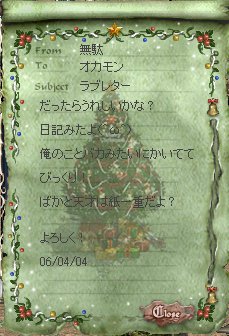 From 無駄
To オカモン
Subject ラブレター
だったらうれしいかな？
日記みたよ(^Д^)
俺のことバカみたいにかいてて
びっくり！
ばかと天才は紙一重だよ？
よろしく！
06/04/04
Close